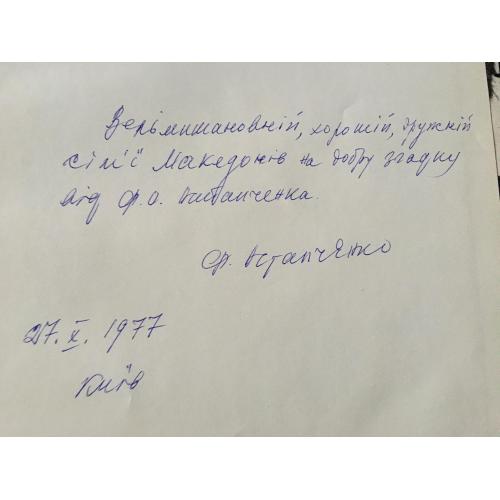 Вельмишановній, хорошій, дружній
сім'ї Македонів на добру згадку
від Ф. О. Остапченка.
Ф. Остапченко
27. X. 1977
Київ